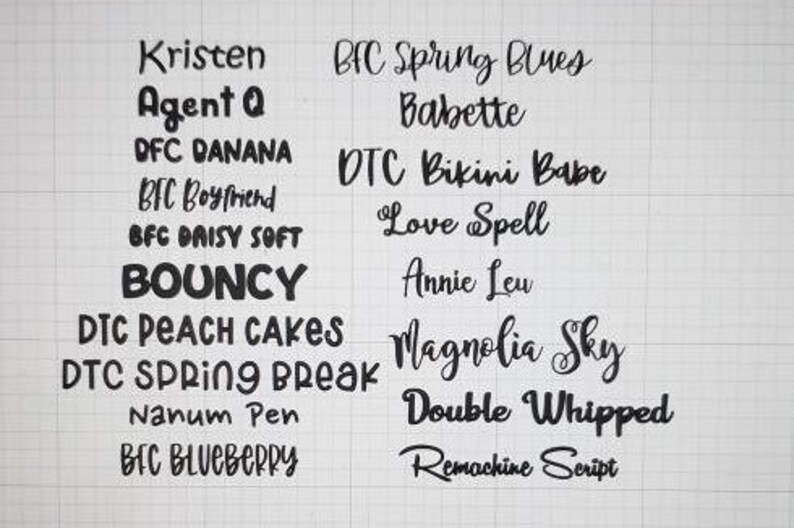 Kristen
Agent Q
DFC DANANA
BFC Boyfriend
BFC DAISY SOFT
BOUNCY
DTC PEACH CAKES
DTC SPRING BREAK
Nanum Pen
BFC BLUEBERRY
BFC Spring Blues
Babette
DTC Bikini Babe
Love Spell
Annie Leu
Magnolia Sky
Double Whipped
Remachine Script